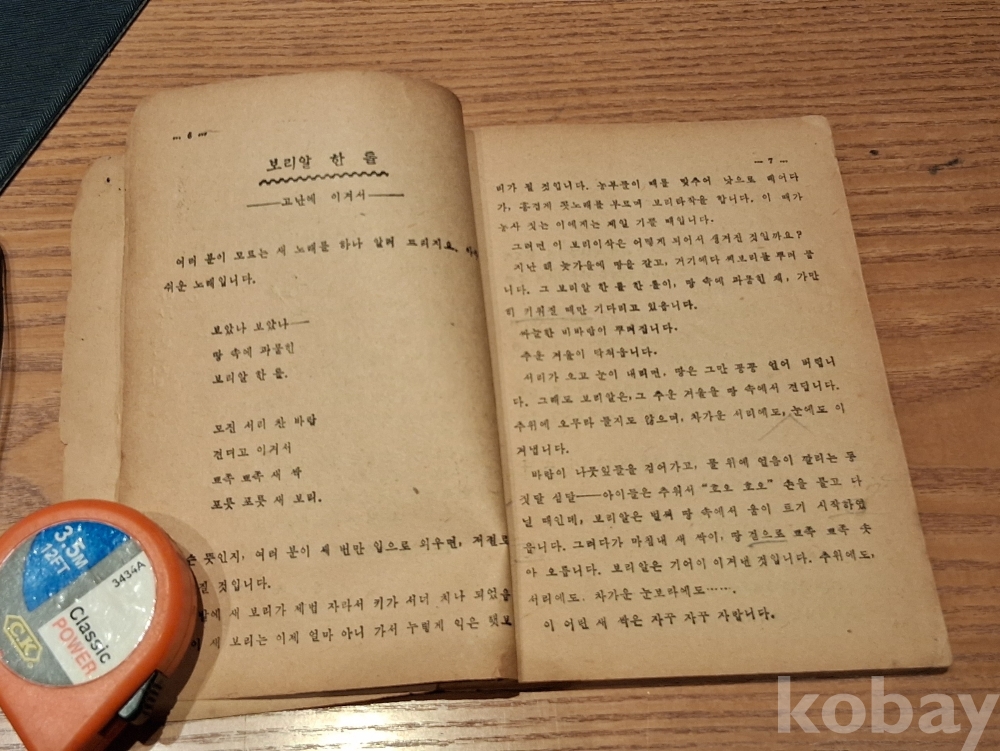 … 6 …
보리알 한 톨
——고난에 이겨서——
여러 분이 모르는 새 노래를 하나 알려 드리지요.
쉬운 노래입니다.
보았나 보았나——
땅 속에 파묻힌
보리알 한 톨.
모진 서리 찬 바람
견디고 이겨서
뾰족 뾰족 새 싹
포릇 포릇 새 보리.
슨 뜻인지, 여러 분이 세 번만 읽으로 외우면, 저절로
질 것입니다.
새 보리가 제법 자라서 키가 서너 치나 되었을
새 보리는 이제 얼마 아니 가서 누렇게 익은 햇보
… 7 …
리가 될 것입니다. 농부들이 때를 맞추어 낫으로 베어다
가, 흥겹게 콧노래를 부르며 보리타작을 합니다. 이 때가
농사 짓는 이에게는 제일 기쁠 때입니다.
그러면 이 보리이삭은 어떻게 되어서 생겨진 것일까요?
지난 해 늦가을에 땅을 갈고, 거기에다 씨보리를 뿌려 둡
니다. 그 보리알 한 톨 한 톨이, 땅 속에 파묻힌 채, 가만
히 키워질 때만 기다리고 있읍니다.
싸늘한 비바람이 뿌려집니다.
추운 겨울이 닥쳐옵니다.
서리가 오고 눈이 내리면, 땅은 그만 꽁꽁 얼어 버립니
다. 그래도 보리알은, 그 추운 겨울을 땅 속에서 견딥니다.
추위에 오무라 들지도 않으며, 차가운 서리에도, 눈에도 이
겨냅니다.
바람이 나뭇잎들을 걷어가고, 물 위에 얼음이 깔리는 동
짓달 섣달——아이들은 추워서 “호오 호오” 손을 불고 다
닐 때인데, 보리알은 벌써 땅 속에서 움이 트기 시작하였
읍니다. 그러다가 마침내 새 싹이, 땅 겉으로 뾰족 뾰족 솟
아 오릅니다. 보리알은 기어이 이겨낸 것입니다. 추위에도,
서리에도, 차가운 눈보라에도…….
이 어린 새 싹은 자꾸 자꾸 자랍니다.
3.5M
12FT
3434A
Classic
POWER
C.K.
kobay